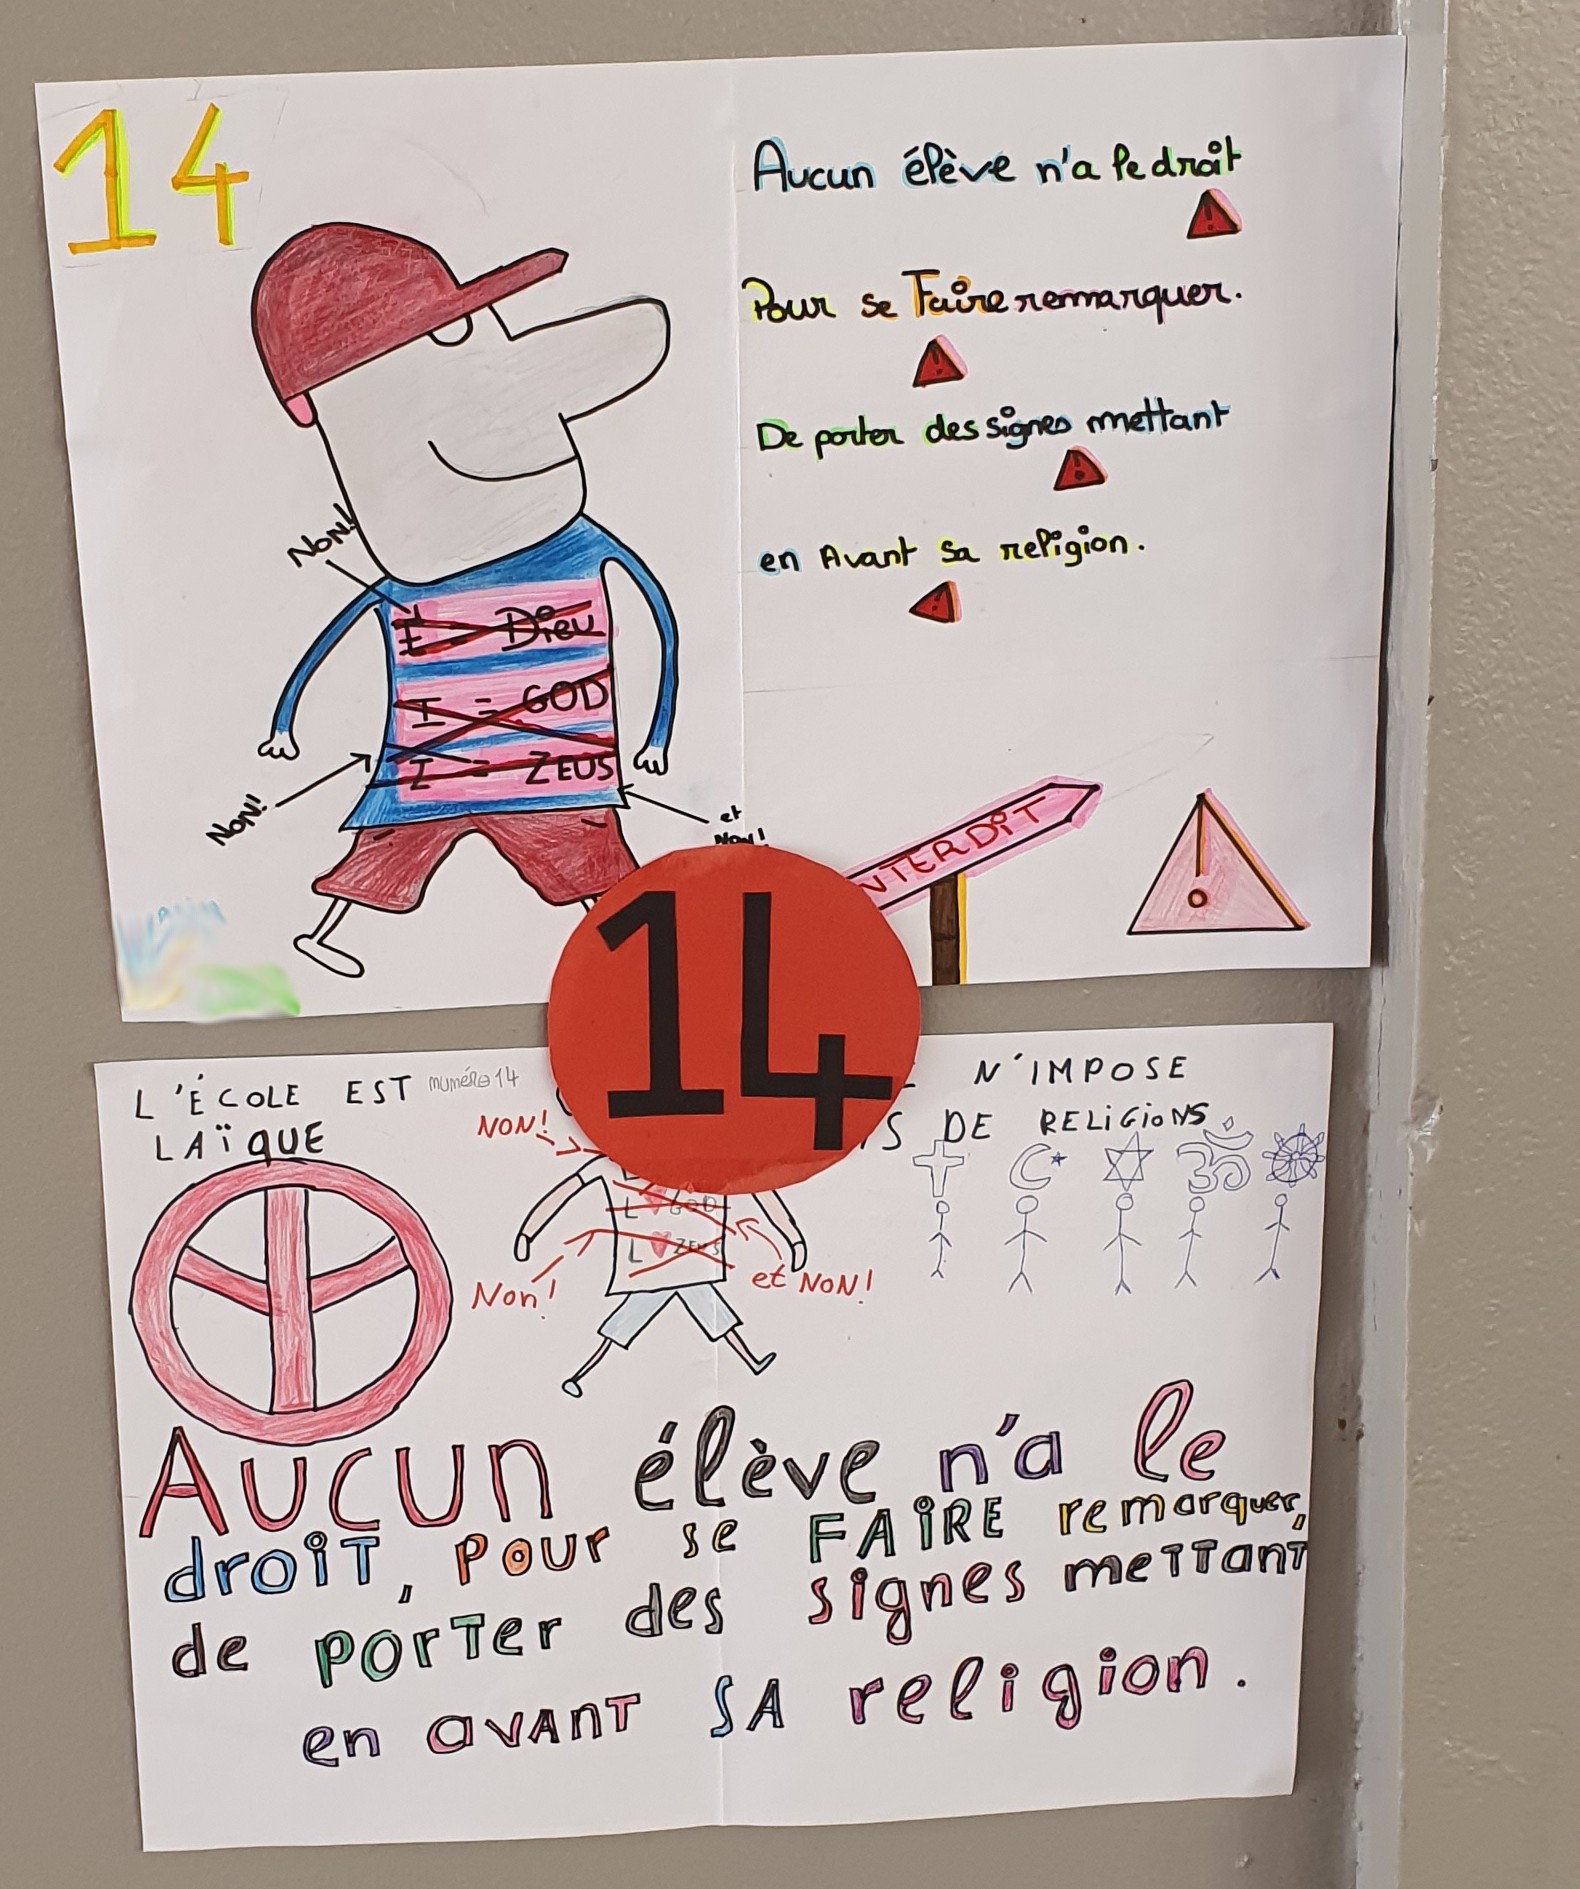 14
Aucun élève n'a le droit
Pour se Faire remarquer.
De porter des signes mettant
en Avant sa religion.
Non!
Dieu
I = GOD
I = ZEUS
Non!
et
Non!
NTERDIT
14
L'ÉCOLE EST
LAÏQUE
numéro 14
N'IMPOSE
S DE RELIGIONS
NON!
L ♥ GOD
L ♥ ZEUS
Non!
et NON!
Aucun élève n'a le
droit, pour se FAIRE remarquer,
de porter des signes mettant
en avant SA religion.